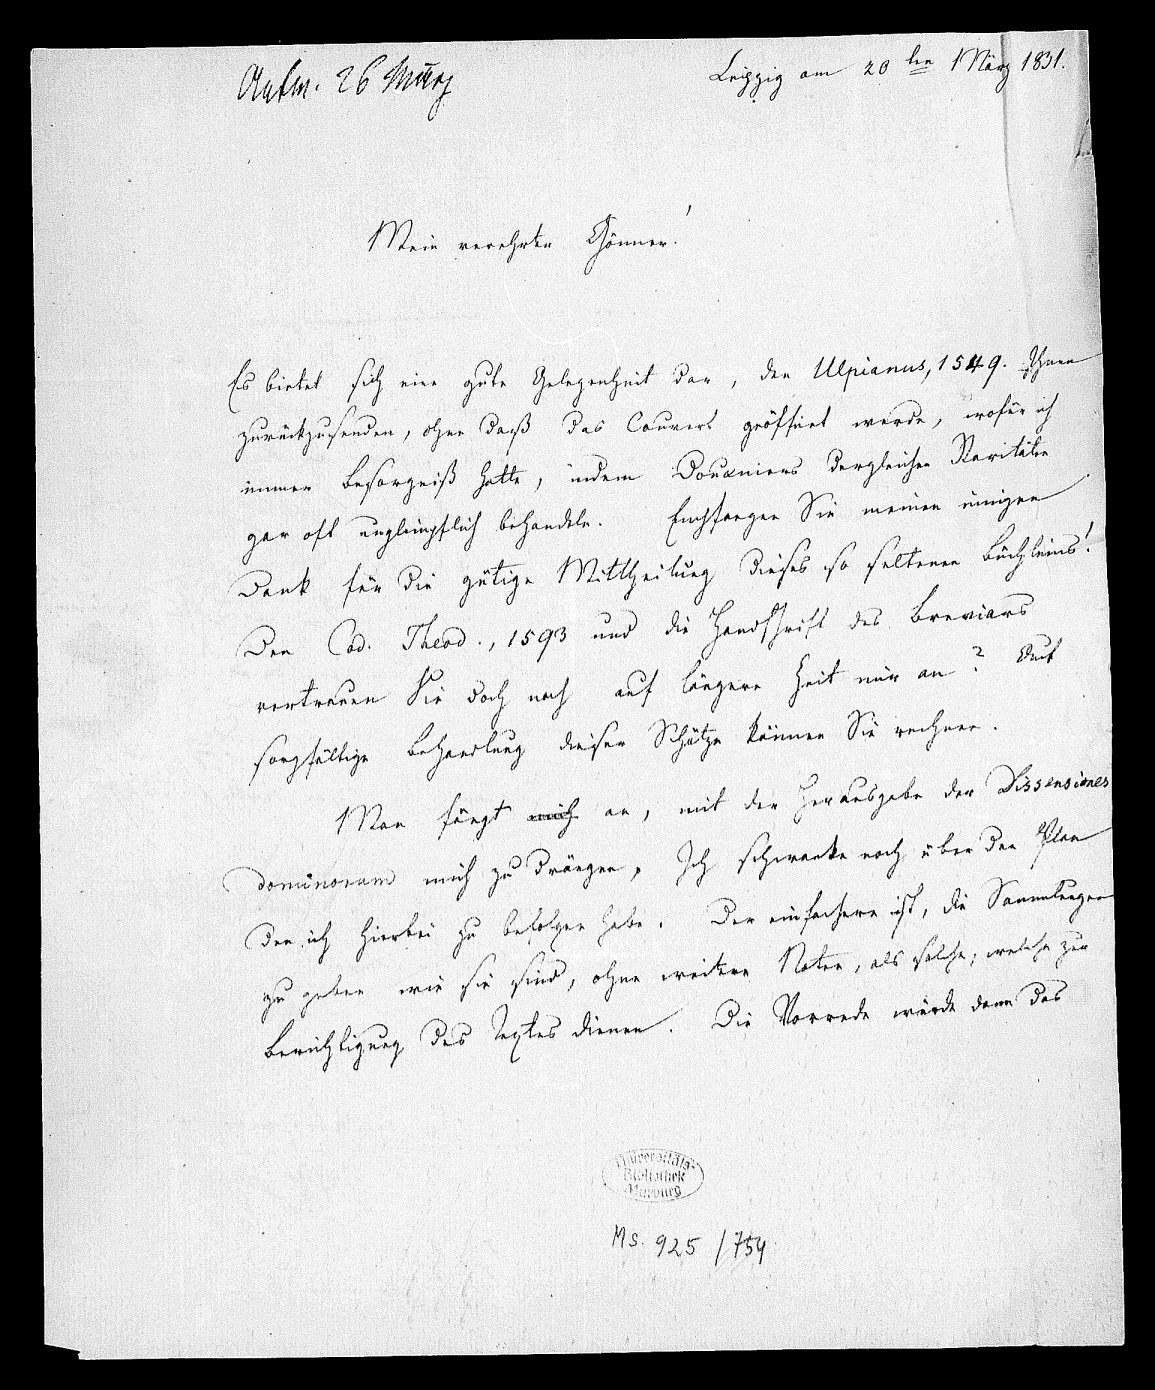 Antw. 26 März
Leipzig am 20 ten März 1831.
Mein verehrter Gönner!
Es bietet sich eine gute Gelegenheit dar, den Ulpianus, 1549. Ihnen
zurückzusenden, ohne daß das Couvert geöffnet werde, wofür ich
immer Besorgniß hatte, indem Douaniers dergleichen Raritäten
gar oft unglimpflich behandeln. Empfangen Sie meinen innigen
Dank für die gütige Mittheilung dieses so seltenen Büchleins!
Den Cod. Theod., 1593 und die Handschrift des Breviars
vertrauen Sie doch noch auf längere Zeit mir an? Auf
sorgfältige Behandlung dieser Schätze können Sie rechnen.
Man fängt mich an, mit der Herausgabe der Dissensiones
dominorum mich zu drängen. Ich schwanke noch über den Plan
den ich hierbei zu befolgen habe. Der einfachere ist, die Sammlungen
zu geben wie sie sind, ohne weitere Noten, als solche, welche zur
Berichtigung des Textes dienen. Die Vorrede würde dann das
Universitäts-
Bibliothek
Marburg
Ms. 925 /754